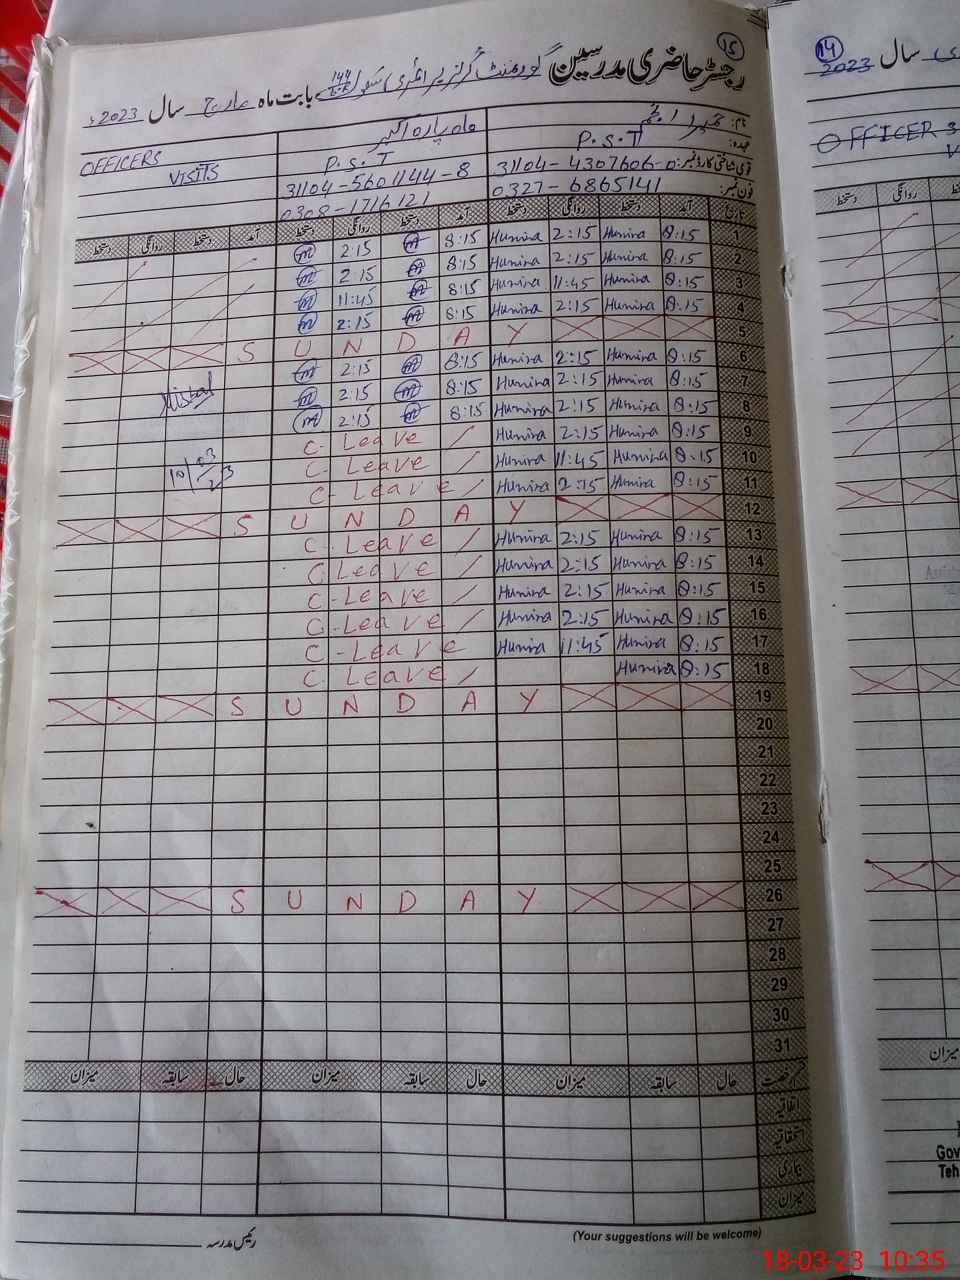 ۱۵
رجسٹر حاضری مدرسین گورنمنٹ گرلز پرائمری سکول بابت ماہ مارچ سال 2023ء
نام: حمیرا انجم ماہ پارہ اکبر
عہدہ: P.S.T P.S.T OFFICERS VISITS
قومی شناختی کارڈ نمبر: 31104-4307606-0 31104-5601144-8
فون نمبر: 0327-6865141 0308-1716121
تاریخ آمد دستخط روانگی دستخط آمد دستخط روانگی دستخط آمد دستخط روانگی دستخط
1 8:15 Humira 2:15 Humira 8:15 m 2:15 m
2 8:15 Humira 2:15 Humira 8:15 m 2:15 m
3 8:15 Humira 11:45 Humira 8:15 m 11:45 m
4 8:15 Humira 2:15 Humira 8:15 m 2:15 m
5 S U N D A Y
6 8:15 Humira 2:15 Humira 8:15 m 2:15 m
7 8:15 Humira 2:15 Humira 8:15 m 2:15 m
8 8:15 Humira 2:15 Humira 8:15 m 2:15 m
9 8:15 Humira 2:15 Humira C. Leave /
10 8:15 Humira 11:45 Humira C. Leave / 10/03/23
11 8:15 Humira 2:15 Humira C. Leave /
12 S U N D A Y
13 8:15 Humira 2:15 Humira C. Leave /
14 8:15 Humira 2:15 Humira C. Leave /
15 8:15 Humira 2:15 Humira C. Leave /
16 8:15 Humira 2:15 Humira C. Leave /
17 8:15 Humira 11:45 Humira C. Leave
18 8:15 Humira C. Leave /
19 S U N D A Y
20
21
22
23
24
25
26 S U N D A Y
27
28
29
30
31
رخصت حال سابقہ میزان حال سابقہ میزان حال سابقہ میزان
اتفاقیہ
استحقاقیہ
بیماری
میزان
رئیس مدرسہ
(Your suggestions will be welcome)
14
سال 2023
OFFICER
روانگی دستخط
میزان
Gov
Teh
18-03-23 10:35